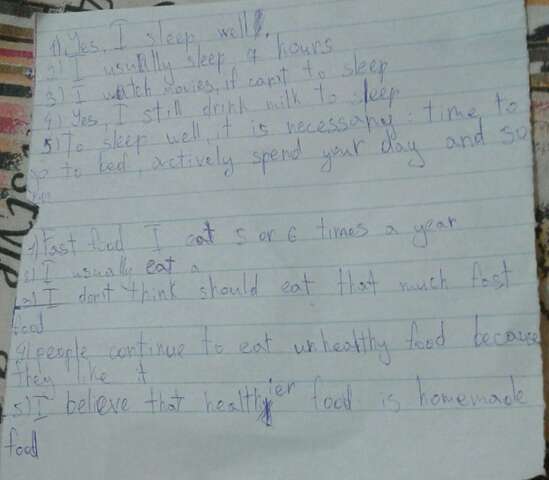 1) Yes, I sleep well.
2) I usually sleep 7 hours
3) I watch movies, if can't to sleep
4) Yes, I still drink milk to sleep
5) To sleep well, it is necessary: time to
go to bed, actively spend your day and so
on
1) Fast food I eat 5 or 6 times a year
2) I usually eat a
3) I don't think should eat that much fast
food
4) people continue to eat unhealthy food because
they like it
5) I believe that healthier food is homemade
food